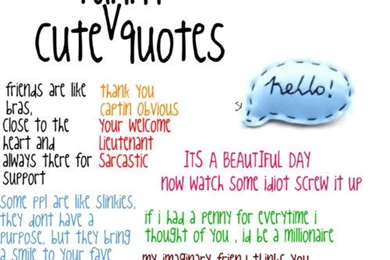 cute quotes
hello!
friends are like
bras,
close to the
heart and
always there for
support
thank you
captin obvious
Your welcome
Lieutenant
Sarcastic
ITS A BEAUTIFUL DAY
now watch some idiot screw it up
some ppl are like slinkies,
they dont have a
purpose, but they bring
a smile to your face
if i had a penny for everytime i
thought of you , id be a millionaire
my imaginary friend thinks you